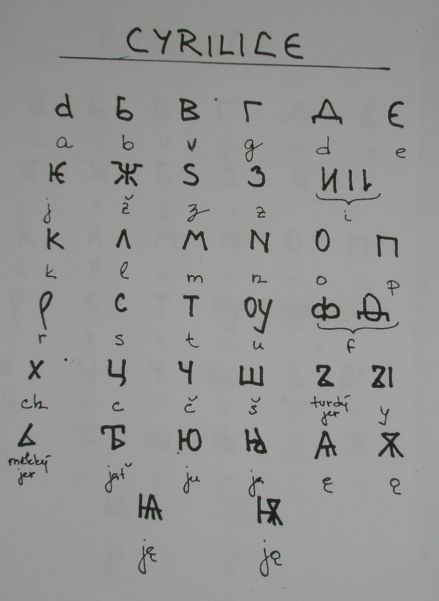 CYRILICE
а Б В Г Д Є
a b v g d e
Ѥ Ж Ѕ З И І
j ž z z i
К Л М N О П
k l m n o p
Р С Т ОУ Ф Ѳ
r s t u f
Х Ц Ч Ш Ъ ЪІ
ch c č š tvrdý jer y
Ь Ѣ Ю Ꙗ Ѧ Ѫ
měkký jer jať ju ja ę ǫ
Ѩ Ѭ
ję jǫ